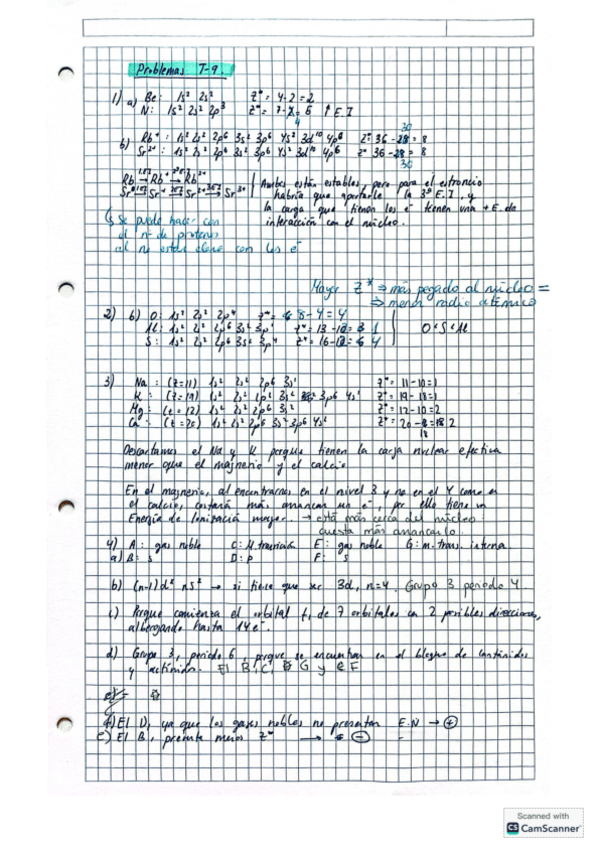 Problemas T-9.
1) a) Be: 1s² 2s² Z* = 4-2 = 2
N: 1s² 2s² 2p³ Z* = 7-2 = 5 ↑ E.I
4
30
b) Rb⁺: 1s² 2s² 2p⁶ 3s² 3p⁶ 4s² 3d¹⁰ 4p⁶ Z* 36-28 = 8
Sr²⁺: 1s² 2s² 2p⁶ 3s² 3p⁶ 4s² 3d¹⁰ 4p⁶ Z* 36-28 = 8
30
Rb → Rb⁺ → Rb²⁺ Ambas están estables, pero para el estroncio
Sr → Sr⁺ → Sr²⁺ → Sr³⁺ habría que aportarle la 3ª E.I, y
la carga que tienen los é tienen una + E. de
↳ Se puede hacer con interacción con el núcleo.
el nº de protones
al no estar claro con los é
Mayor Z* ⇒ más pegado al núcleo =
⇒ menor radio atómico
2) b) O: 1s² 2s² 2p⁴ Z* = 8-4 = 4
Al: 1s² 2s² 2p⁶ 3s² 3p¹ Z* = 13-12 = 1 O < S < Al
S: 1s² 2s² 2p⁶ 3s² 3p⁴ Z* = 16-12 = 4
3) Na: (Z=11) 1s² 2s² 2p⁶ 3s¹ Z* = 11-10 = 1
K: (Z=19) 1s² 2s² 2p⁶ 3s² 3p⁶ 4s¹ Z* = 19-18 = 1
Mg: (Z=12) 1s² 2s² 2p⁶ 3s² Z* = 12-10 = 2
Ca: (Z=20) 1s² 2s² 2p⁶ 3s² 3p⁶ 4s² Z* = 20-18 2
18
Descartamos el Na y K porque tienen la carga nuclear efectiva
menor que el magnesio y el calcio
En el magnesio, al encontrarnos en el nivel 3 y no en el 4 como en
el calcio, costará más arrancar un é, por ello tiene un
Energía de Ionización mayor. → está más cerca del núcleo.
cuesta más arrancarlo
4) A: gas noble C: M. transición E: gas noble G: m. trans. interna
a) B: s D: p F: s
b) (n-1)d¹ ns² → si tiene que ser 3d, n=4. Grupo 3 periodo 4
c) Porque comienza el orbital f, de 7 orbitales en 2 posibles direcciones,
albergando hasta 14é.
d) Grupo 3, periodo 6, porque se encuentran en el bloque de lantánidos
y actínidos. El B, C, G y F
f) El D, ya que los gases nobles no presentan E.N → +
e) El B, presente menos Z* → -
Scanned with
CS CamScanner